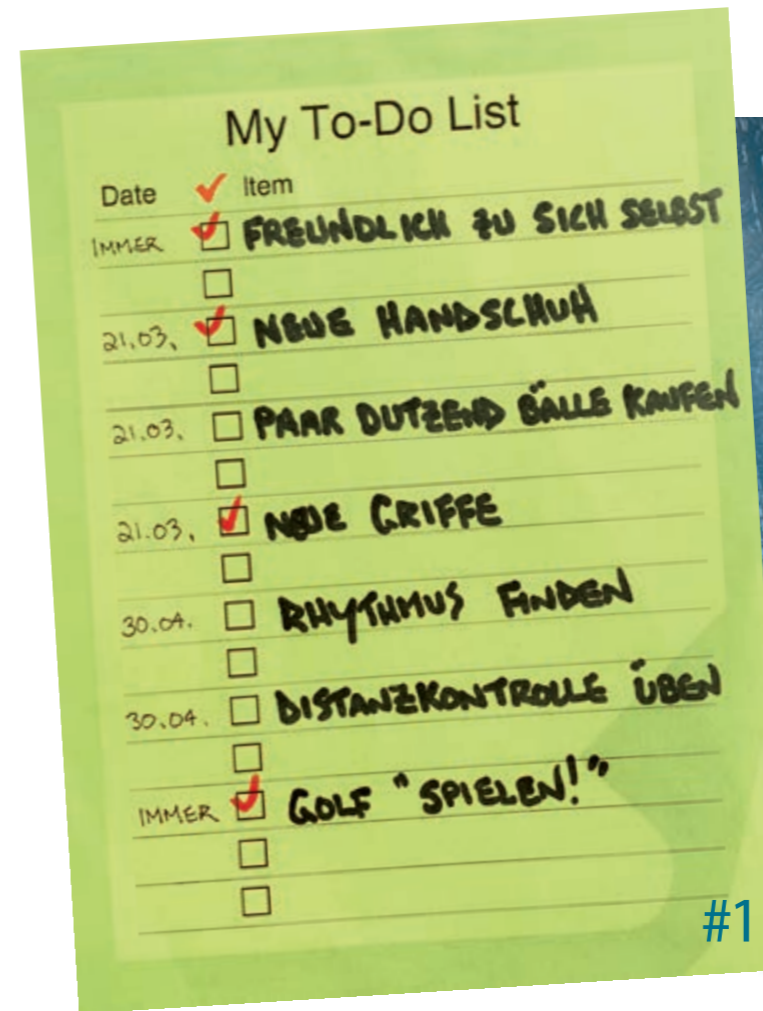 My To-Do List
Date Item
IMMER FREUNDLICH ZU SICH SELBST
21.03. NEUE HANDSCHUH
21.03. PAAR DUTZEND BÄLLE KAUFEN
21.03. NEUE GRIFFE
30.04. RHYTHMUS FINDEN
30.04. DISTANZKONTROLLE ÜBEN
IMMER GOLF "SPIELEN!"
#1